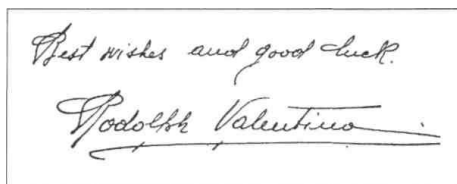 Best wishes and good luck.
Rodolph Valentino